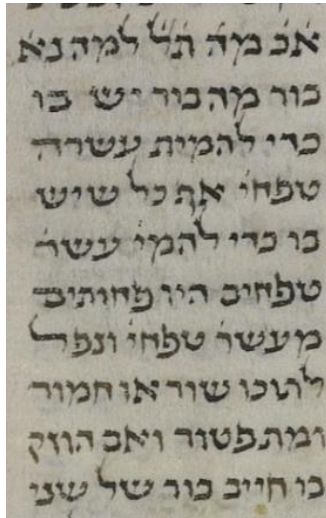 אם מה תל למה נא
בור מה בור יש בו
כדי להמית עשרה
טפחי׳ אף כל שיש
בו כדי להמי׳ עשר׳
טפחים היו פחותים
מעשר׳ טפחי׳ ונפל
לתוכו שור או חמור
ומת פטור ואם הוזק
בו חייב בור של שני